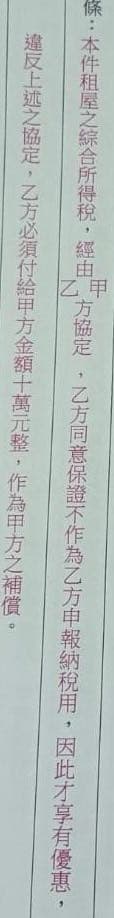 條：本件租屋之綜合所得稅，經由甲乙方協定，乙方同意保證不作為乙方申報納稅用，因此才享有優惠，
違反上述之協定，乙方必須付給甲方金額十萬元整，作為甲方之補償。